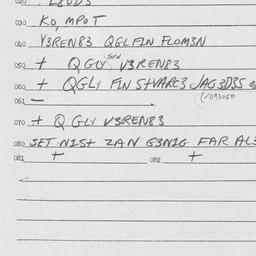 030 KO, MPOT
040 V3REN83 QGLFIN FLOM3N
050 + QGLY V3REN83
060 + QGLY FIN S+VARC3 JAG3D3S
(/043050
061 —
070 + Q GLY V3REN83
080 SET NIS+ ZAN G3NIG FAR AL3
081 + 082 +